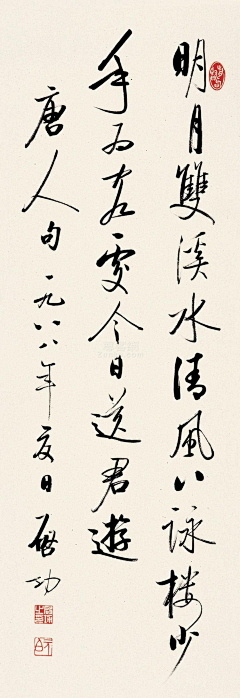 明月雙溪水清風八詠樓少
年為客處今日送君遊
唐人句一九八八年夏日啟功